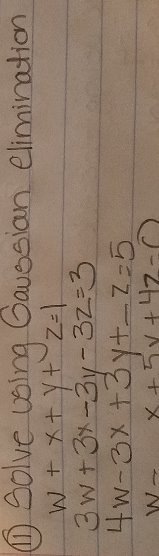 ⑪ Solve using Gaussian elimination
w + x + y + z = 1
3w + 3x - 3y - 3z = 3
4w - 3x + 3y + - z = 5
w - x + 5y + 4z = 0